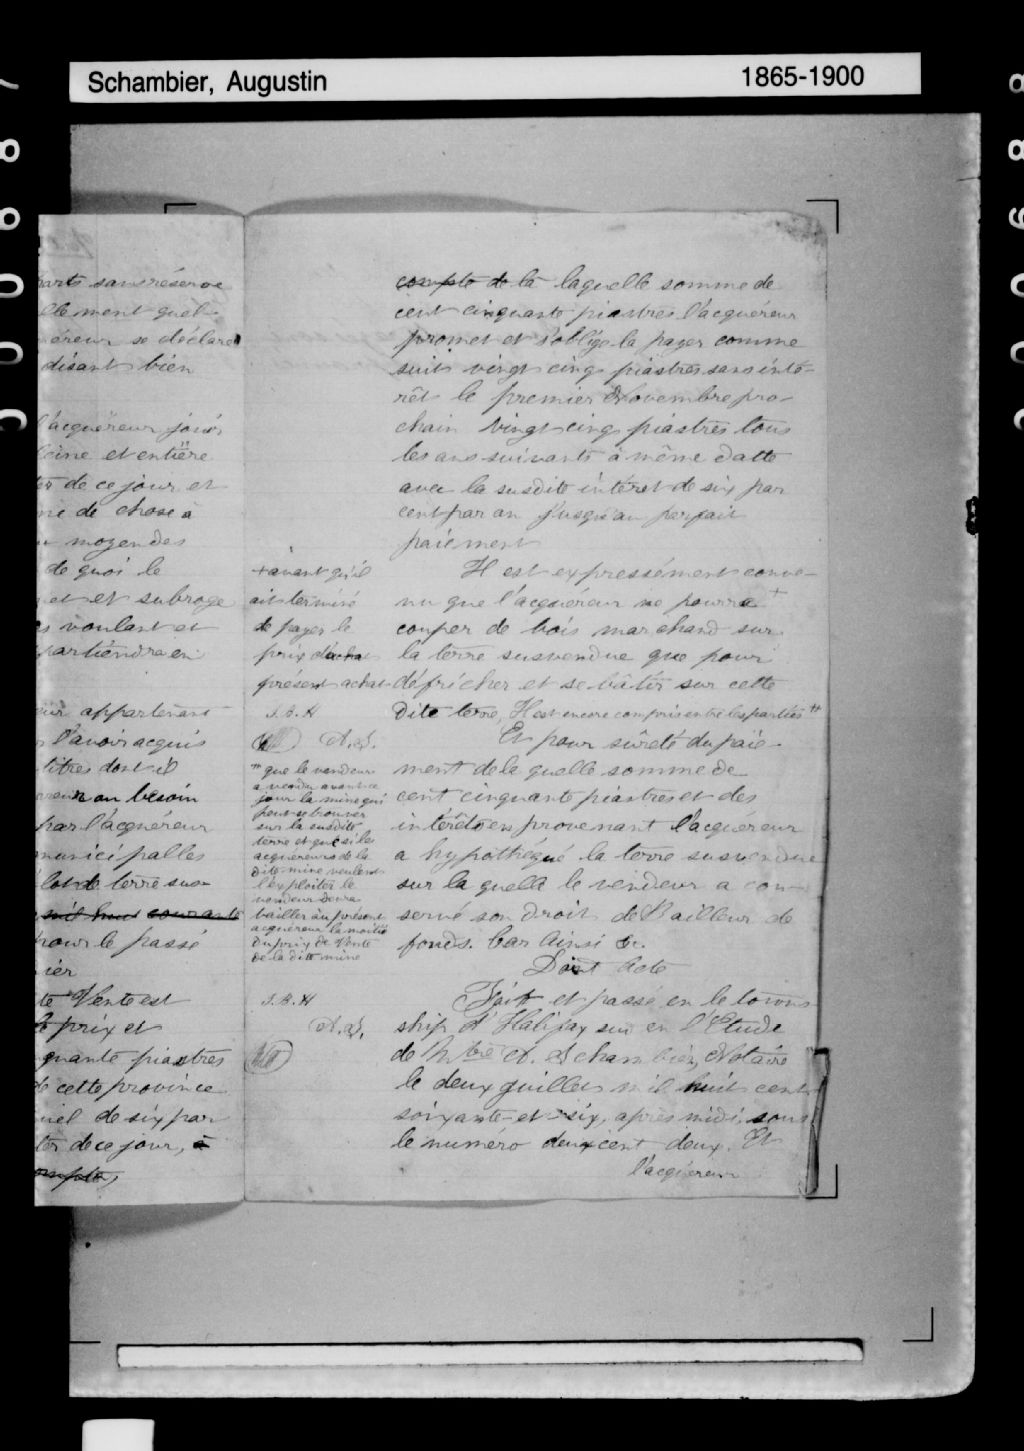 Schambier, Augustin
1865-1900
parts sans réserve
llement quel
éreur se déclare
disant bien
l'acquéreur jouir
leine et entière
ter de ce jour et
de chose à
moyen des
de quoi le
et et subroge
voulant et
partiendra en
eur appartenant
l'avoir acquis
titres dont il
au besoin
par l'acquéreur
municipalles
lot de terre sus-
mil huit courante
pour le passé
ier
te Vente est
prix et
quante piastres
de cette province
uel de six par
ter de ce jour, à
compte,
+ avant qu'il
ait terminé
de payer le
prix d'acha
présent achat
J. B. H
A. S.
++ que le vendeur
a vendu avant ce
jour la mine qui
peut se trouver
sur la susdite
terre et que si les
acquéreurs de la
dite mine veulent
l'exploiter le
vendeur devra
bailler au présent
acquéreur la moitié
du prix de Vente
de la dite mine
J. B. H
A. S.
compte de la laquelle somme de
cent cinquante piastres l'acquéreur
promet et s'oblige la payer comme
suit vingt cinq piastres sans inté-
rêt le premier Novembre pro-
chain Vingt cinq piastres tous
les ans suivants à même datte
avec la susdite intéret de six par
cent par an jusqu'au parfait
paiement
Il est expressément conve-
nu que l'acquéreur ne pourra +
couper de bois marchand sur
la terre susvendue que pour
défricher et se bâtir sur cette
dite terre, Il est encore compris entre les parties ++
Et pour sûreté du paie-
ment de la quelle somme de
cent cinquante piastres et des
intérêts en provenant l'acquéreur
a hypothéqué la terre susvendue
sur la quelle le vendeur a con-
servé son droit de Bailleur de
fonds. Car Ainsi &c.
Dont Acte
Fait et passé en le town
ship d'Halifax sud en l'Etude
de Mtre A. Schambier, Notaire
le deux juillet mil huit cent
soixante-et-six, après midi, sous
le numero deux cent deux. Et
l'acquéreur